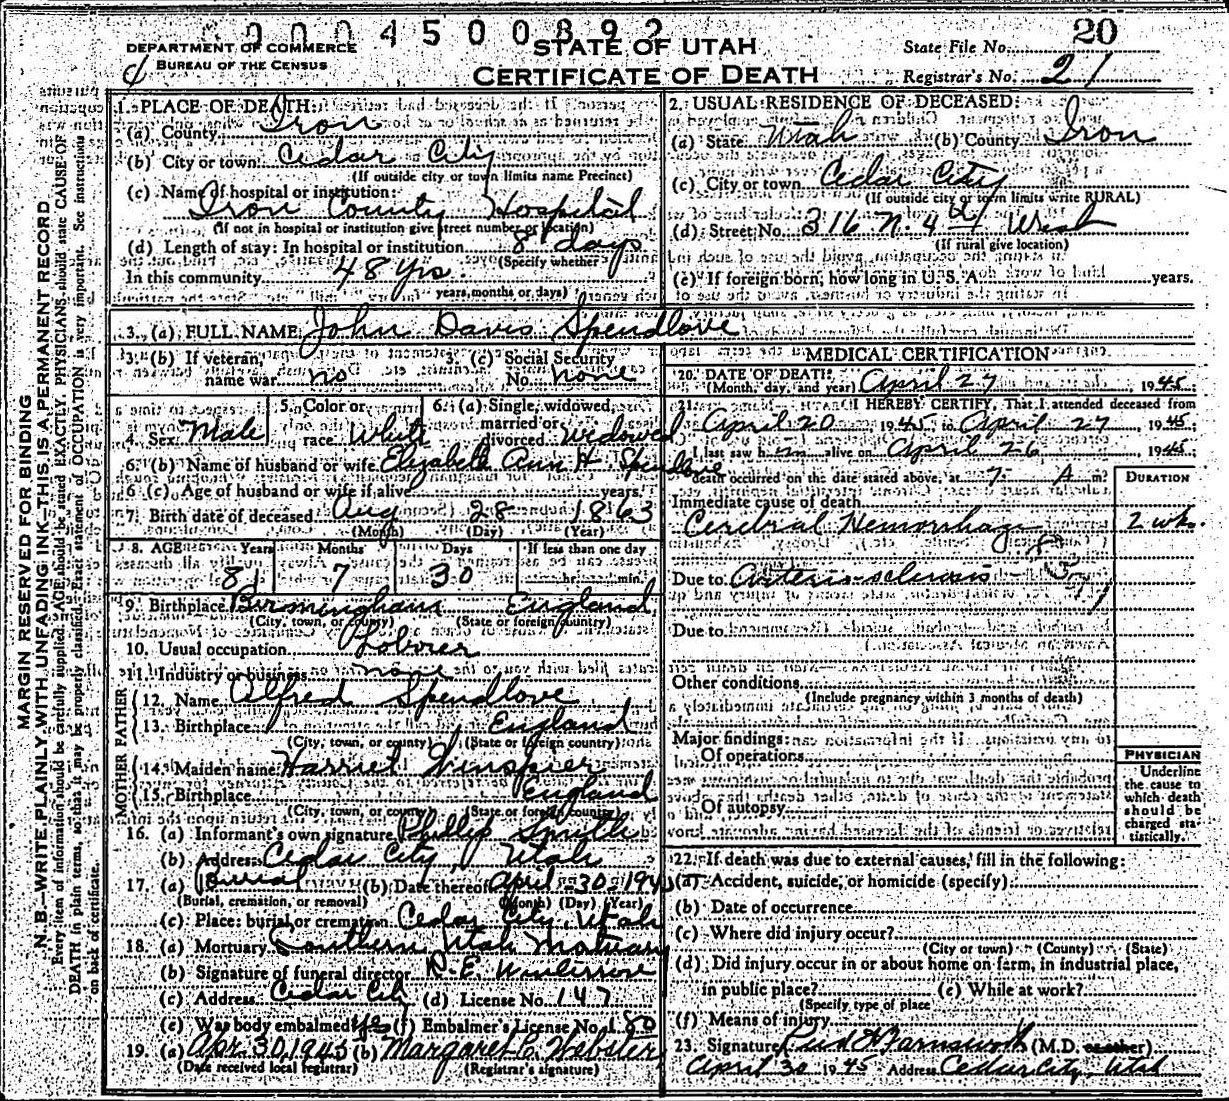 0 0 0 4 5 0 0 8 9 2
DEPARTMENT OF COMMERCE
BUREAU OF THE CENSUS
STATE OF UTAH
CERTIFICATE OF DEATH
State File No. 20
Registrar's No. 21
MARGIN RESERVED FOR BINDING
N. B.—WRITE PLAINLY, WITH UNFADING INK—THIS IS A PERMANENT RECORD
Every item of information should be carefully supplied. AGE should be stated EXACTLY. PHYSICIANS should state CAUSE OF
DEATH in plain terms, so that it may be properly classified. Exact statement of OCCUPATION is very important. See instructions
on back of certificate.
1. PLACE OF DEATH:
(a) County Iron
(b) City or town Cedar City
(If outside city or town limits name Precinct)
(c) Name of hospital or institution:
Iron County Hospital
(If not in hospital or institution give street number or location)
(d) Length of stay: In hospital or institution 8 days
(Specify whether
In this community 48 yrs.
years, months or days)
2. USUAL RESIDENCE OF DECEASED:
(a) State Utah (b) County Iron
(c) City or town Cedar City
(If outside city or town limits write RURAL)
(d) Street No. 316 N. 4th West
(If rural give location)
(e) If foreign born, how long in U. S. A. years.
3. (a) FULL NAME John Davis Spendlove
3. (b) If veteran, name war no
3. (c) Social Security No. none
4. Sex Male
5. Color or race White
6. (a) Single, widowed, married or divorced Widowed
6. (b) Name of husband or wife Elizabeth Ann H Spendlove
6 (c) Age of husband or wife if alive years.
7. Birth date of deceased Aug 28 1863
(Month) (Day) (Year)
8. AGE Years Months Days If less than one day
81 7 30 hr. min.
9. Birthplace Birmingham England
(City, town, or county) (State or foreign country)
10. Usual occupation Laborer
11. Industry or business none
FATHER
12. Name Alfred Spendlove
13. Birthplace England
(City, town, or county) (State or foreign country)
MOTHER
14. Maiden name Harriet
15. Birthplace England
(City, town, or county) (State or foreign country)
16. (a) Informant's own signature Phillip Smith
(b) Address Cedar City, Utah
17. (a) Burial (b) Date thereof April 30-1945
(Burial, cremation, or removal) (Month) (Day) (Year)
(c) Place: burial or cremation Cedar City, Utah
18. (a) Mortuary Southern Utah Motuary
(b) Signature of funeral director R. E.
(c) Address Cedar City (d) License No. 147
(e) Was body embalmed yes (f) Embalmer's License No. 180
19. (a) Apr. 30, 1945 (b) Margaret C. Webster
(Date received local registrar) (Registrar's signature)
MEDICAL CERTIFICATION
20. DATE OF DEATH:
(Month, day, and year) April 27, 1945
21. I HEREBY CERTIFY, That I attended deceased from
April 20 1945, to April 27, 1945;
I last saw him alive on April 26 1945;
death occurred on the date stated above, at 7- A m.
DURATION
Immediate cause of death
Cerebral Hemorrhage 2 wks.
Due to Arterio-sclerosis
Due to
Other conditions
(Include pregnancy within 3 months of death)
Major findings:
Of operations
Of autopsy
PHYSICIAN
Underline
the cause to
which death
should be
charged sta-
tistically.
22. If death was due to external causes, fill in the following:
(a) Accident, suicide, or homicide (specify):
(b) Date of occurrence
(c) Where did injury occur?
(City or town) (County) (State)
(d) Did injury occur in or about home on farm, in industrial place,
in public place? (e) While at work?
(Specify type of place
(f) Means of injury
23. Signature Farnsworth (M.D. or other)
April 30 1945 Address Cedar City, Utah